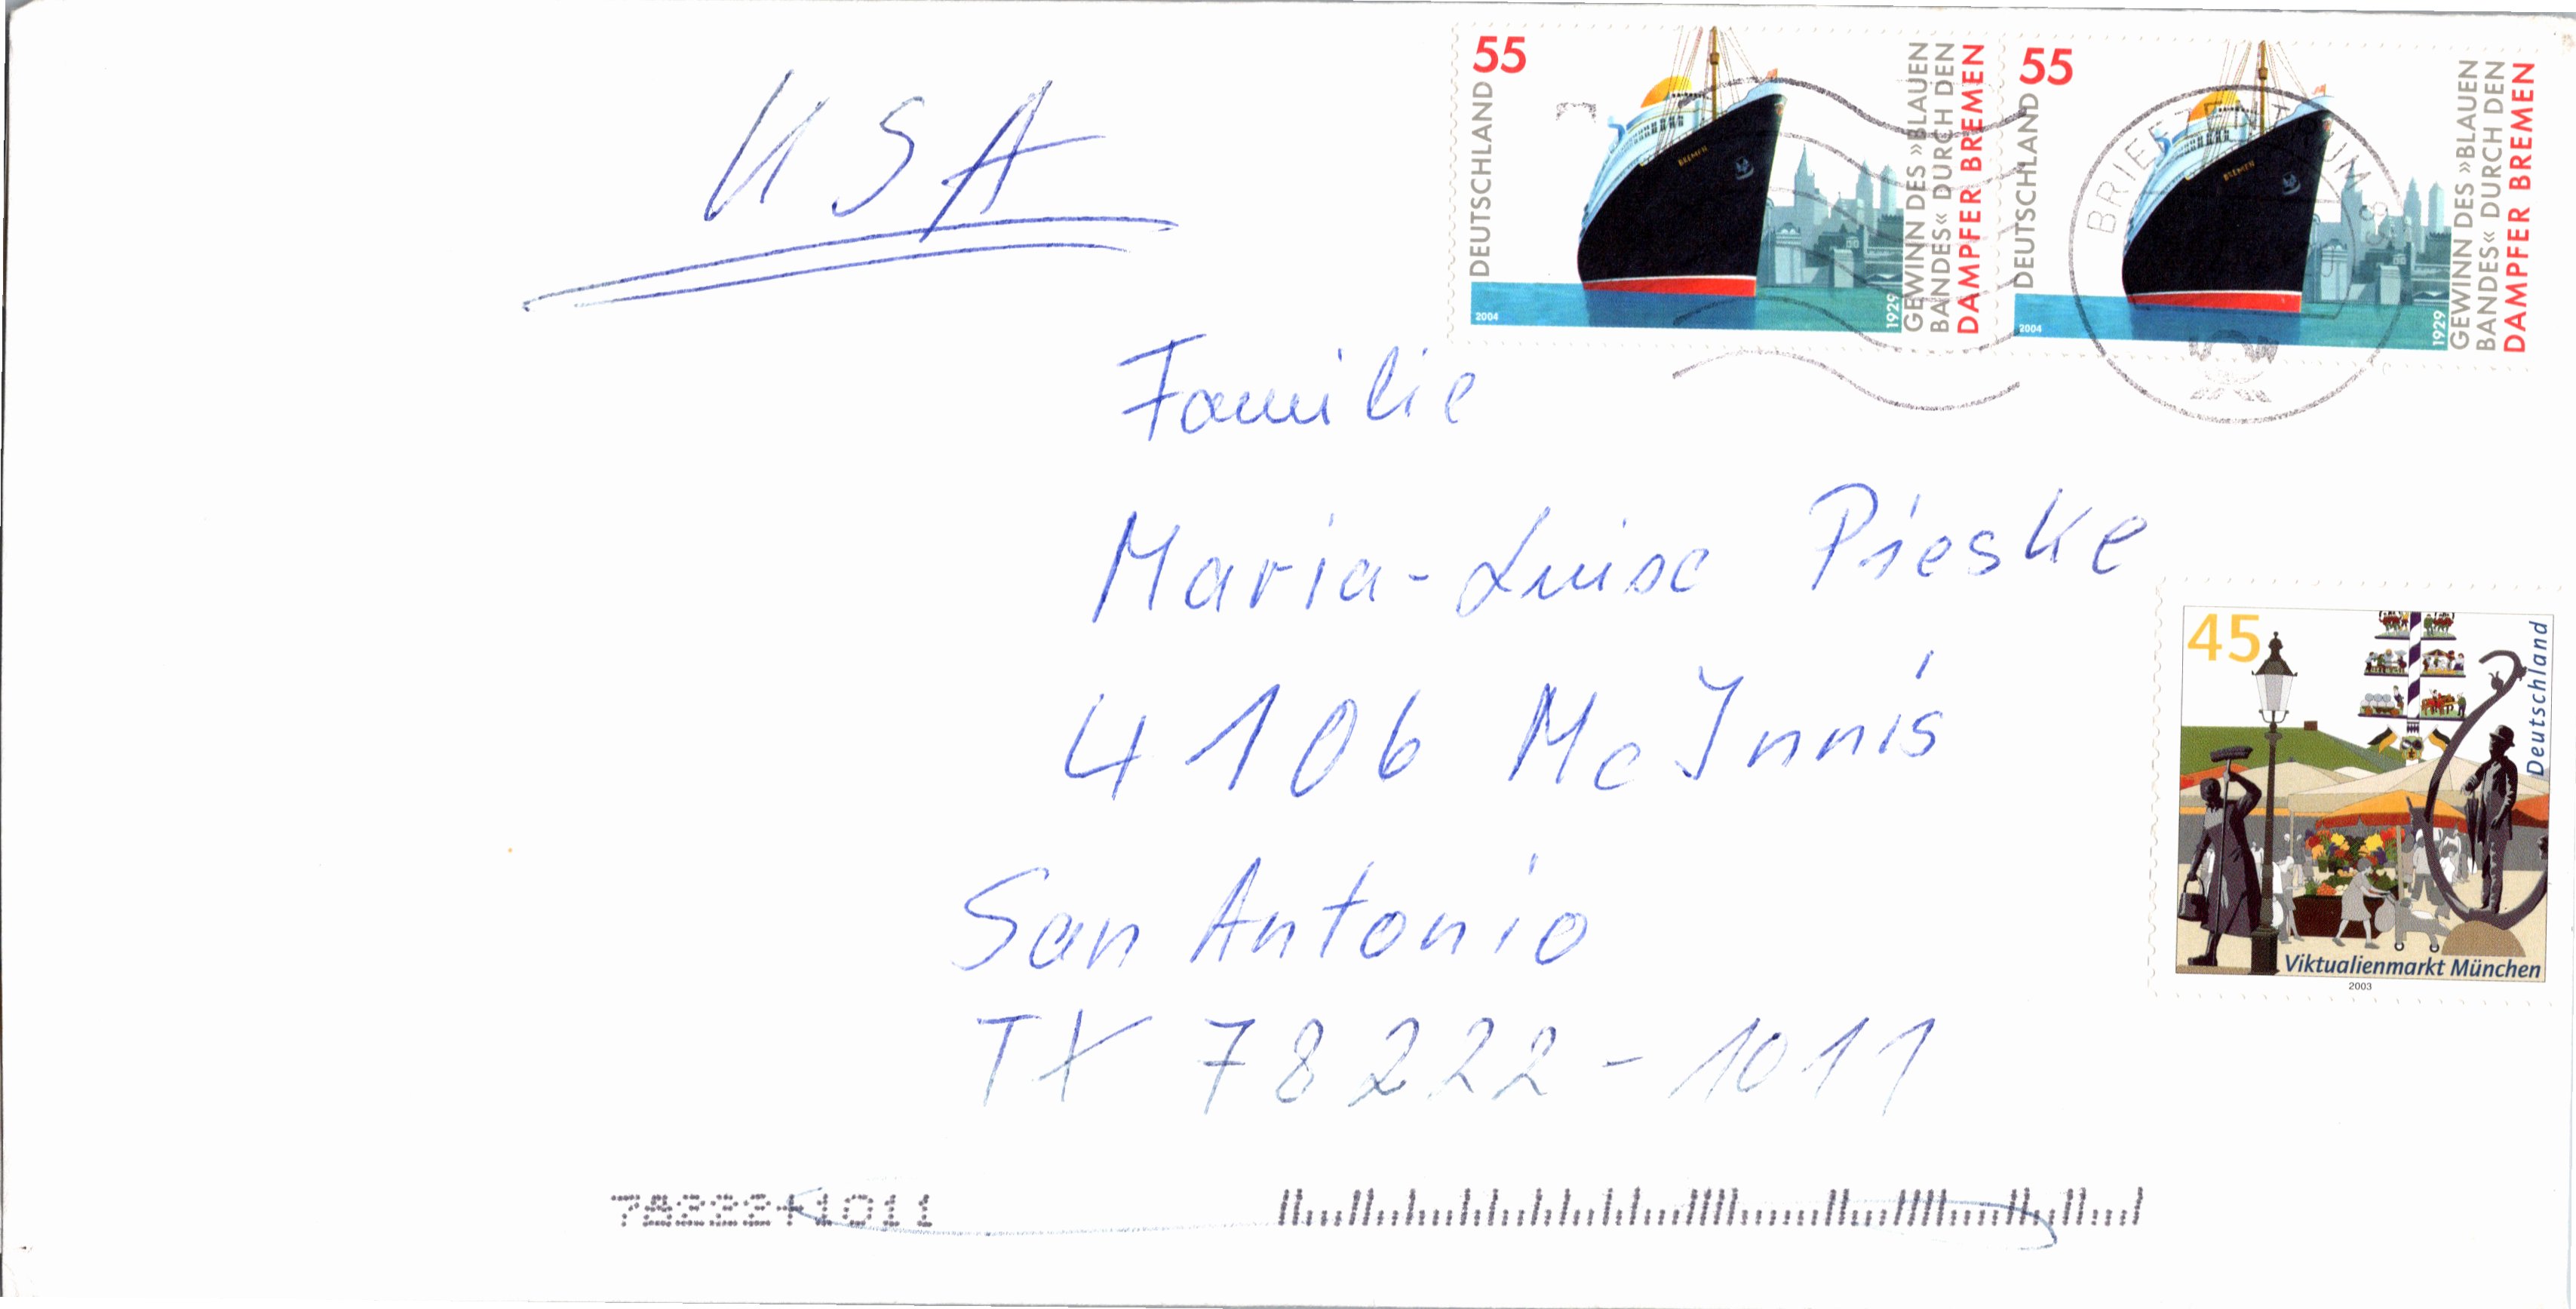 USA
55
DEUTSCHLAND
2004
1929
GEWINN DES »BLAUEN
BANDES« DURCH DEN
DAMPFER BREMEN
BREMEN
55
DEUTSCHLAND
2004
1929
GEWINN DES »BLAUEN
BANDES« DURCH DEN
DAMPFER BREMEN
BREMEN
BRIEFZENTRUM
Familie
Maria-Luise Pieske
4106 McInnis
San Antonio
TX 78222-1011
45
Deutschland
Viktualienmarkt München
2003
78222+1011